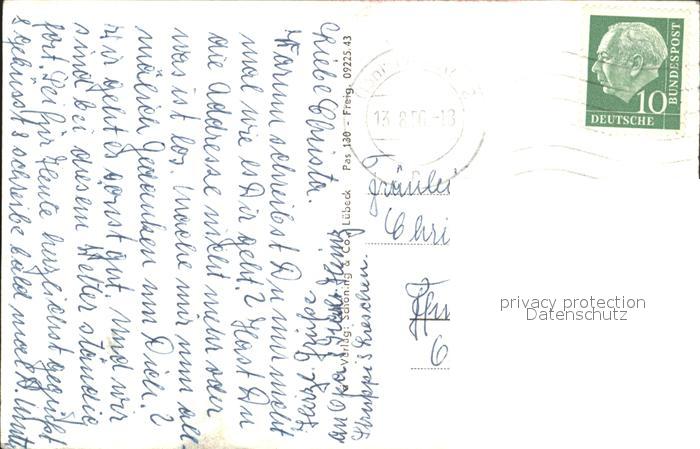 Liebe Christa.
Warum schreibst Du mir nicht
mal wie es Dir geht? Hast Du
die Addresse nicht mehr oder
was ist los. Mache mir nun all
mälich Gedanken um Dich.
Mir geht es sonst gut. Sind wir
sind bei diesem Wetter ständig
fort. Sei für Heute herzlichst gegrüßt
& geküsst & schreibe bald mal
Verlag: Schöning & Co., Lübeck Pas 130 - Freig. 09225.43
13.8.56.-18
DEUTSCHE
BUNDESPOST
10
Fräulei
Chri
privacy protection
Datenschutz